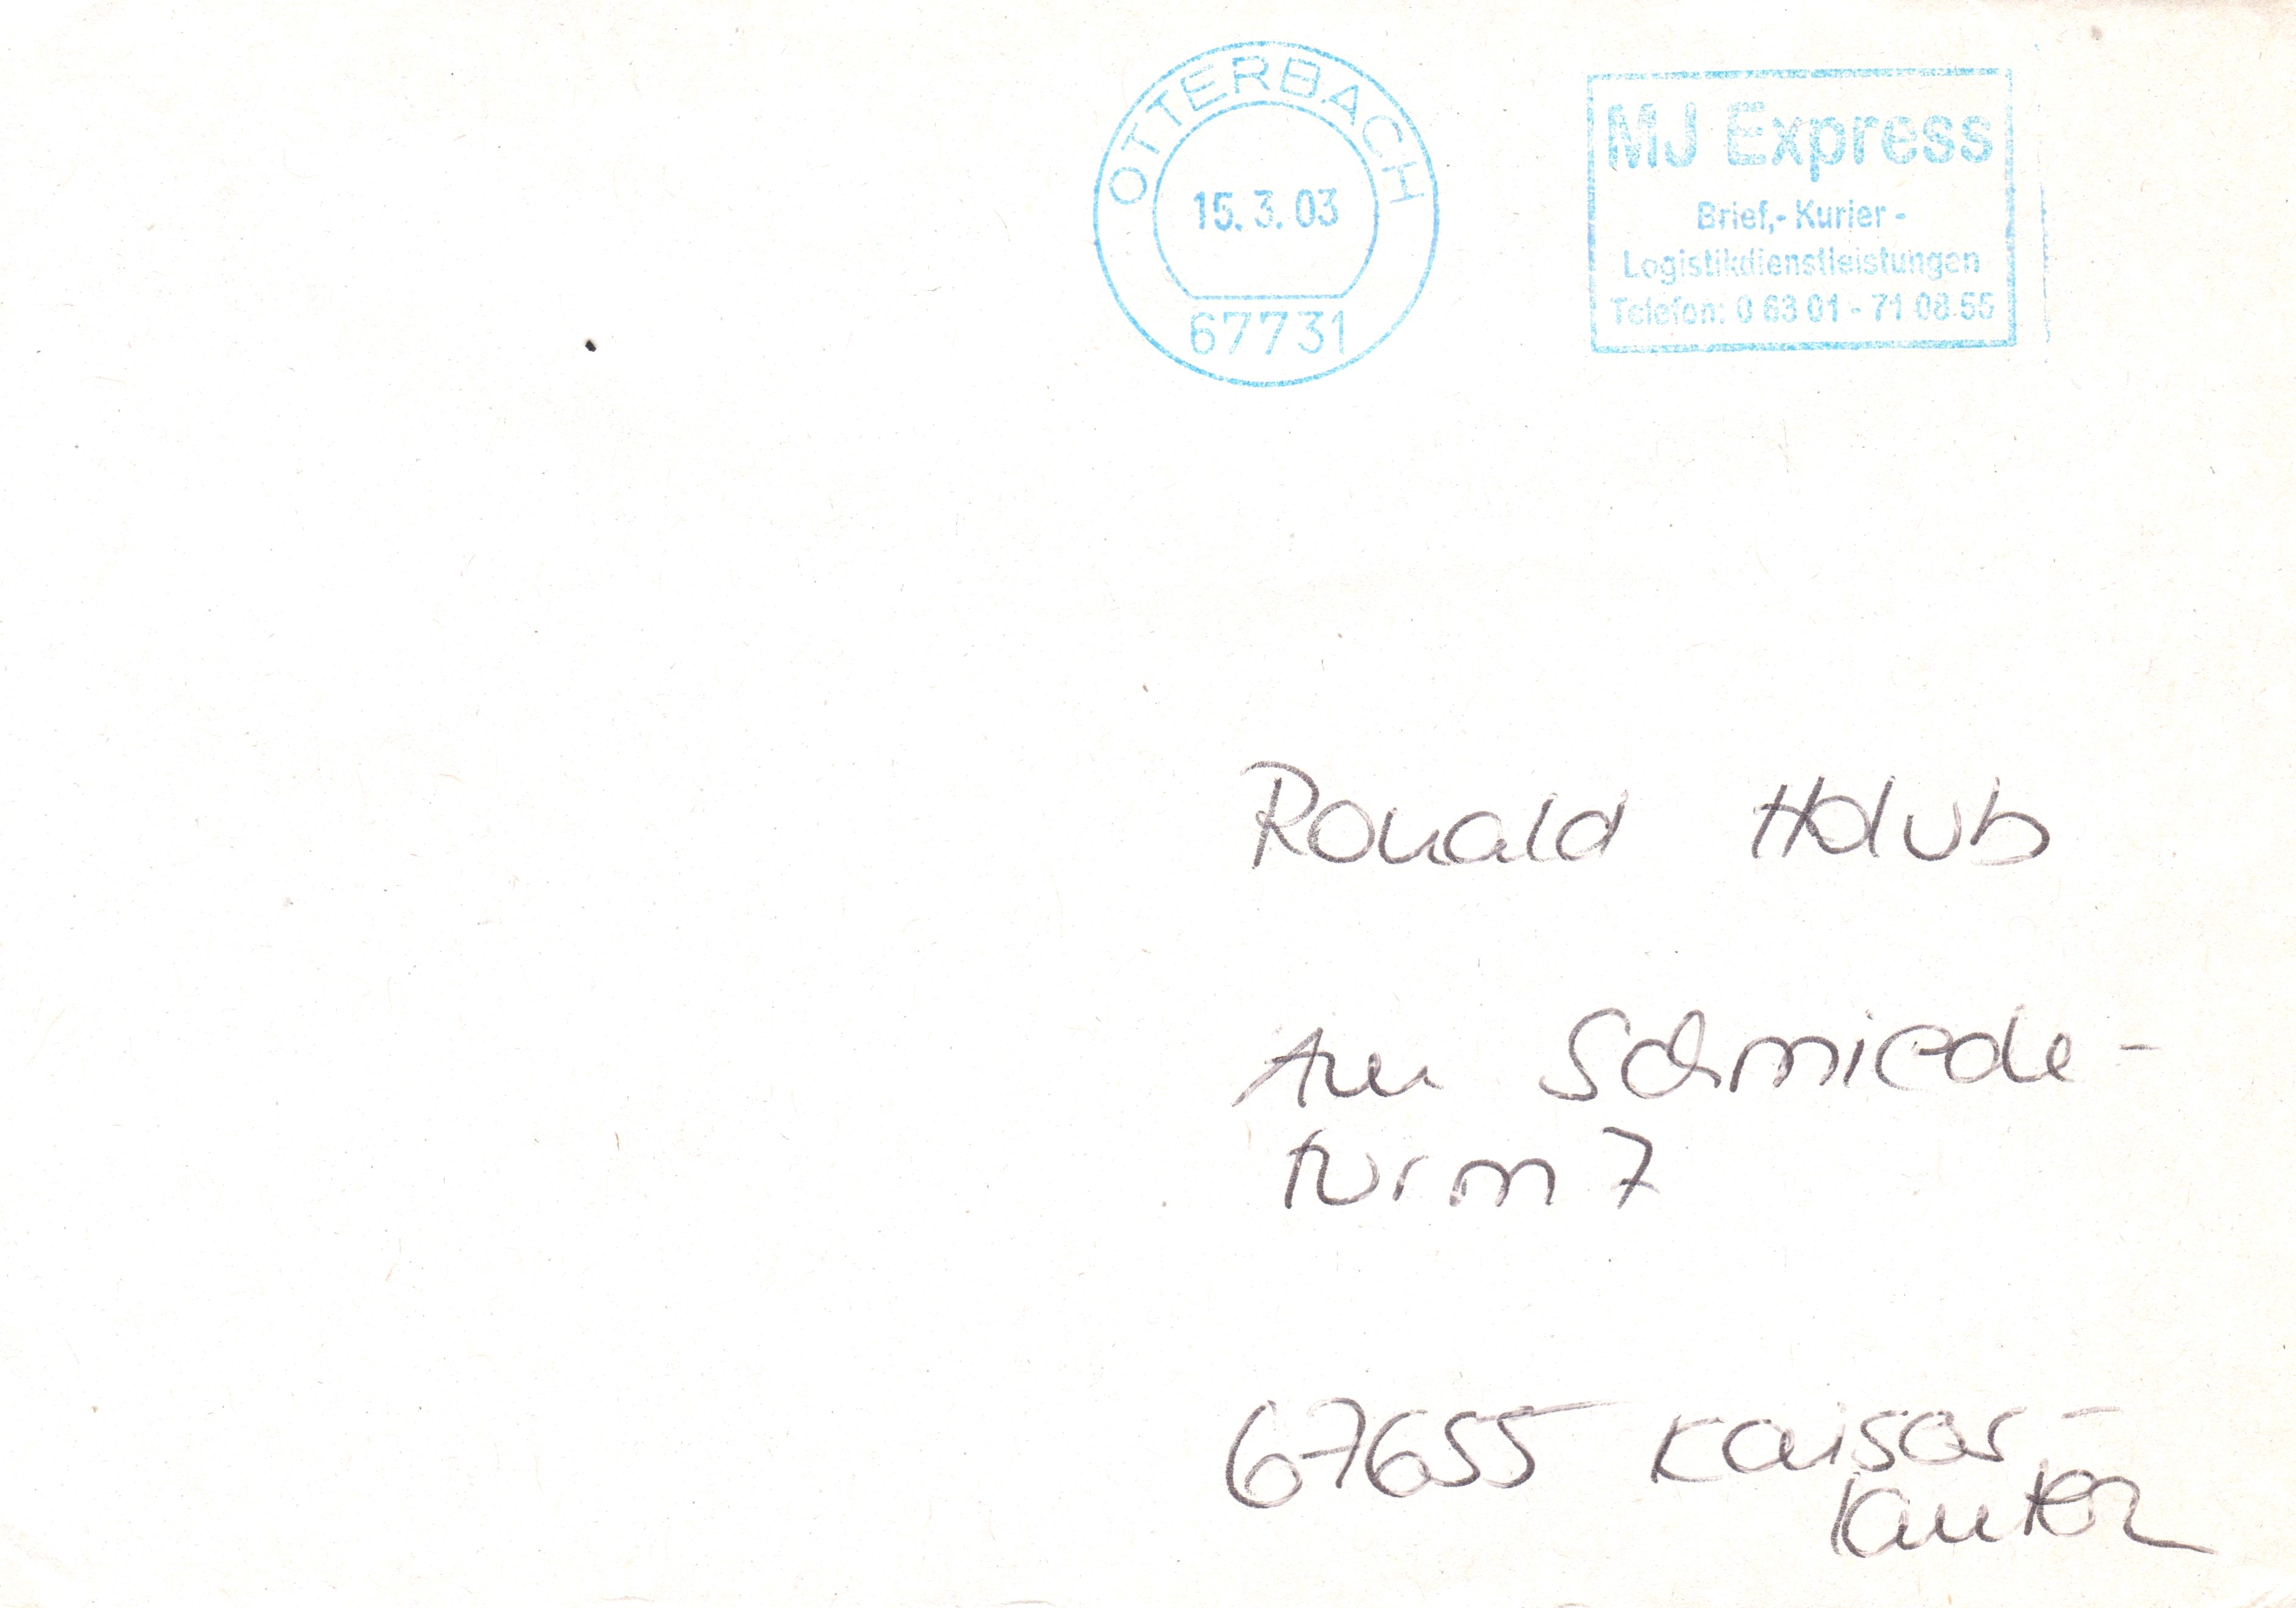 OTTERBACH
15.3.03
67731
MJ Express
Brief,- Kurier -
Logistikdienstleistungen
Telefon: 0 63 01 - 71 08 55
Ronald Holub
Am Schmiede-
turm 7
67655 Kaisers-
lautern